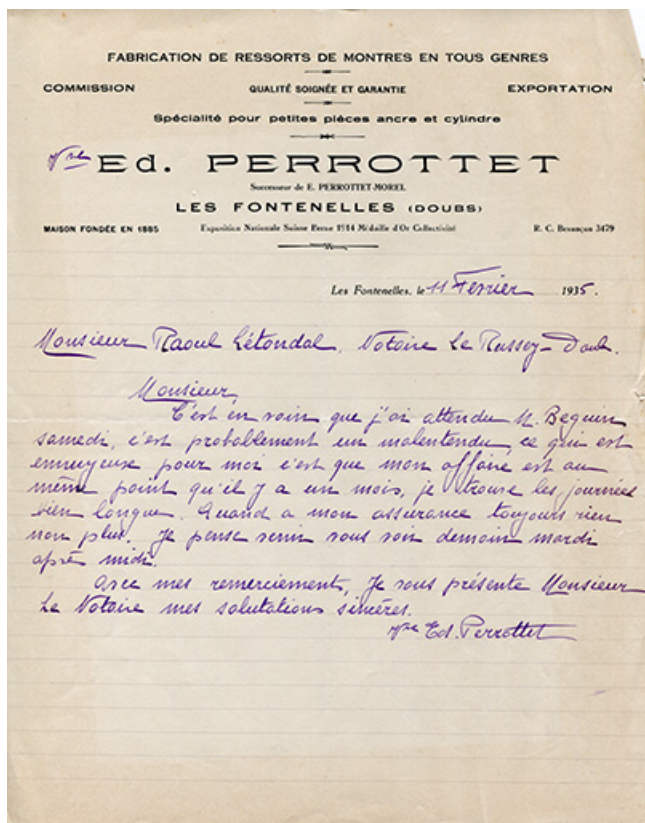 FABRICATION DE RESSORTS DE MONTRES EN TOUS GENRES
COMMISSION QUALITÉ SOIGNÉE ET GARANTIE EXPORTATION
Spécialité pour petites pièces ancre et cylindre
Vve Ed. PERROTTET
Successeur de E. PERROTTET-MOREL
LES FONTENELLES (DOUBS)
MAISON FONDÉE EN 1885 Exposition Nationale Suisse Berne 1914 Médaille d'Or Collectivité R. C. Besançon 3479
Les Fontenelles, le 11 Février 1935.
Monsieur Raoul Létondal, Notaire Le Russey - Doub.
Monsieur
C'est en vain que j'ai attendu M. Beguin
samedi, c'est probablement un malentendu, ce qui est
ennuyeuse pour moi c'est que mon affaire est au
même point qu'il y a un mois, je trouve les journées
bien longue. Quand a mon assurance toujours rien
non plus. Je pense venir vous voir demain mardi
aprè midi.
Avec mes remerciement, Je vous présente Monsieur
Le Notaire mes salutations sincères.
Vve Ed. Perrottet